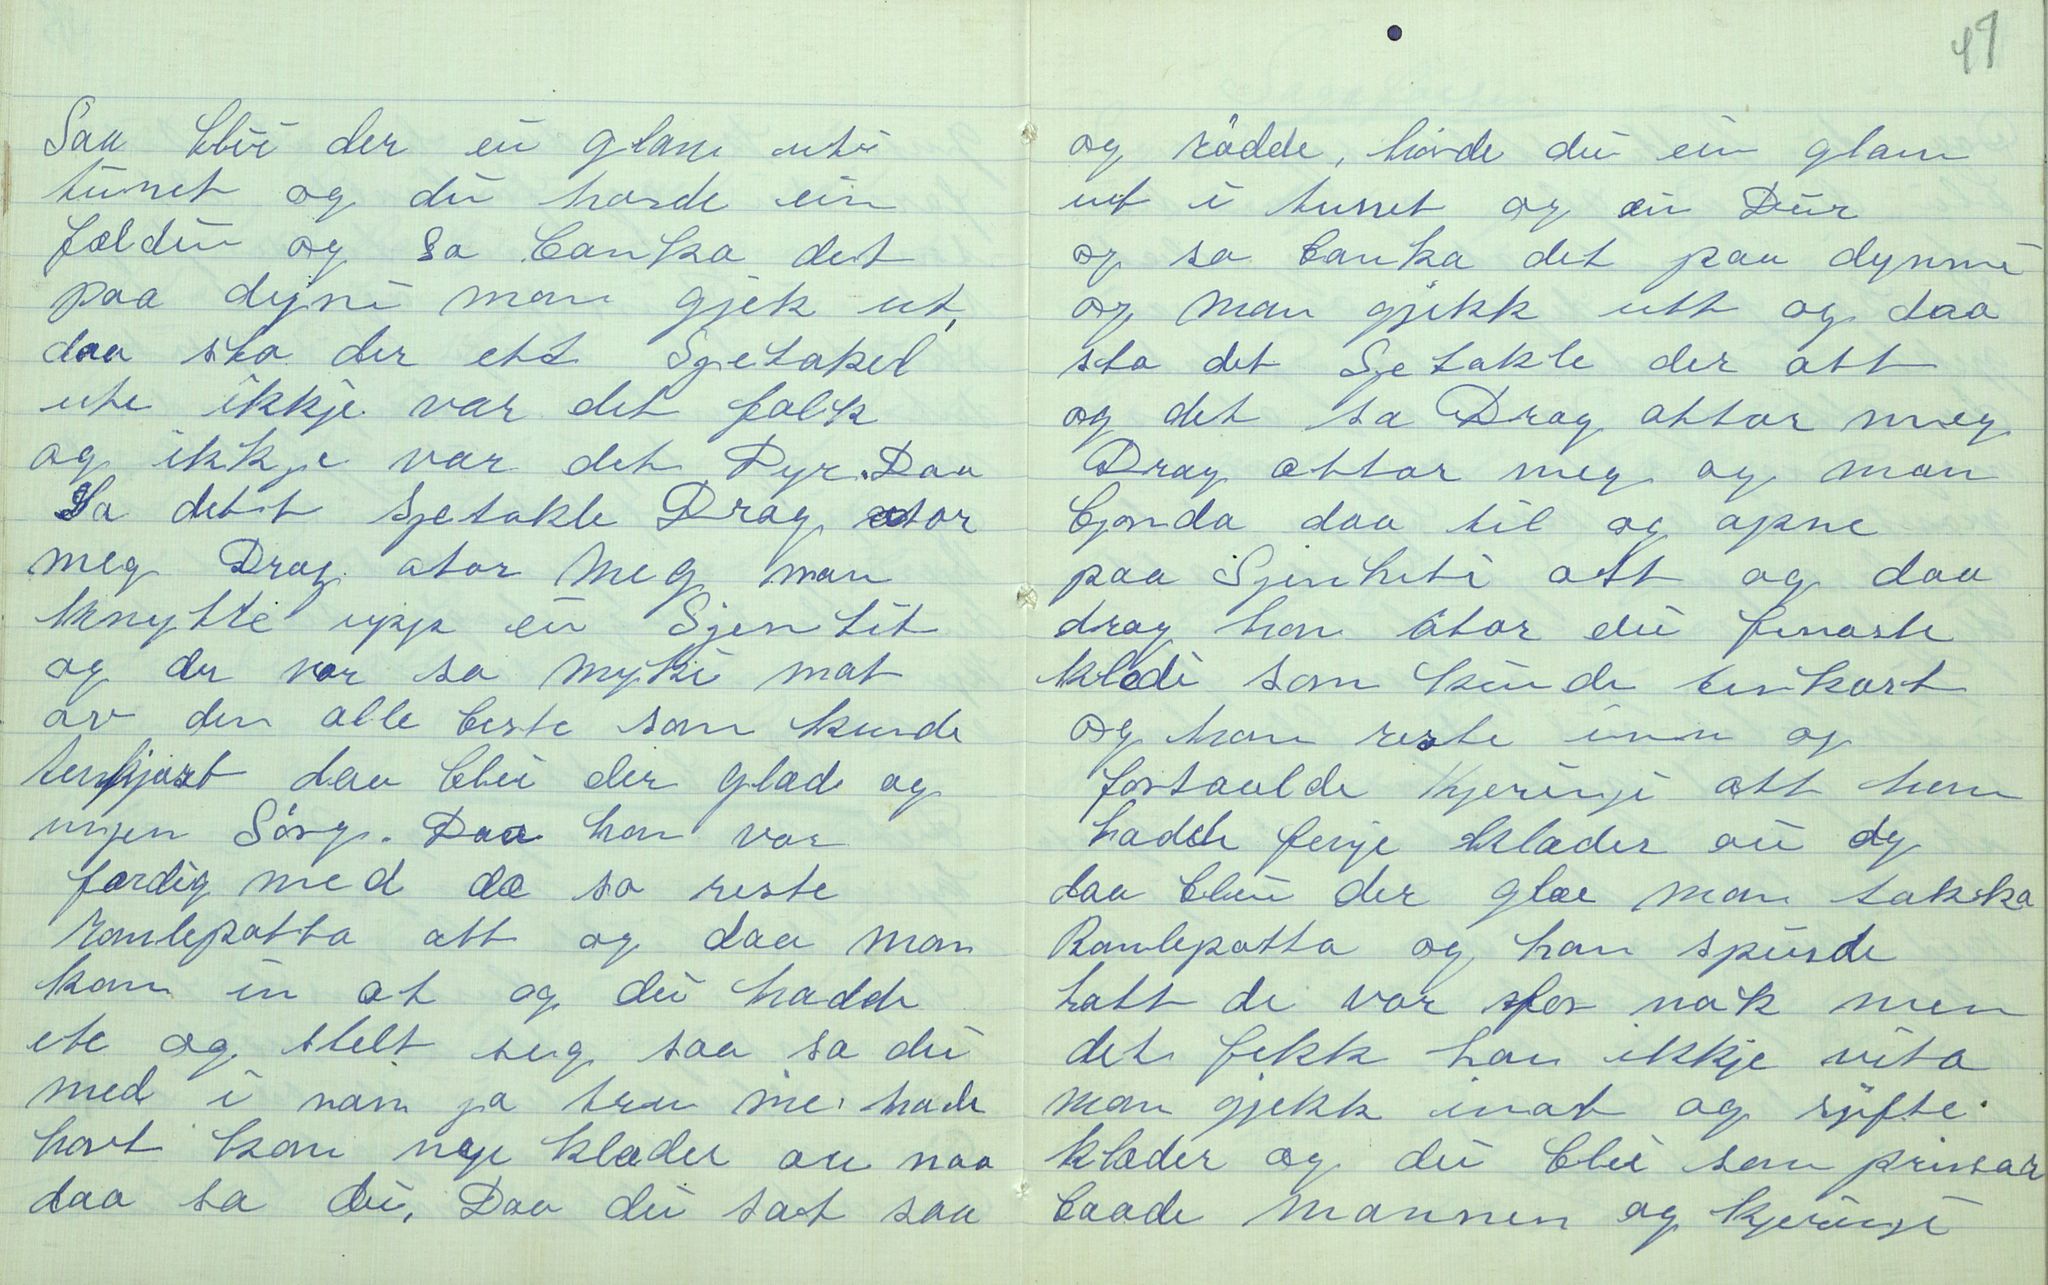 49
Saa blei der ein glam uti
tunet og dei horde ein
fældur og sa banka det
paa dyni man gjek ut,
daa sto der ett Sjetakel
ute ikkje var det folk
og ikkje var det Dyr. Daa
Sa dett sjetakle Drag ator
meg Drag ator meg man
knytte upp ein Sjen hit
og der var so myki mat
av den alle beste som kunde
tenkjast daa blei der glade og
injen Sórg. Daa han var
færdig med dæ so reste
ramlepatta att og daa man
kom in at og dei hadde
ete og stelt seg saa sa dei
med i nóin ja tru me hade
havt kan nye klæder au naa
daa sa dei, Daa dei sat saa
og rödde, hórde dei ein glam
ut i tunet og ein Dur
og so banka det paa dynni
og man gjekk utt og daa
sto det Sjetakle der att
og det sa Drag attor meg
Drag attor meg og man
bjonda daa til og opne
paa Sjinhiti att og daa
drog han ator dei finaste
klædi som kunde tenkast
og han reste inn og
fortaulde kjeringi att han
hadde fenje klæder au og
daa bleu der glæe man takka
Ramlepatta og han spurde
hatt de var for nok men
det fekk han ikkje vita
man gjekk inat og sjifte
klæder og dei blei som prinsar
baade mannen og kjeringi